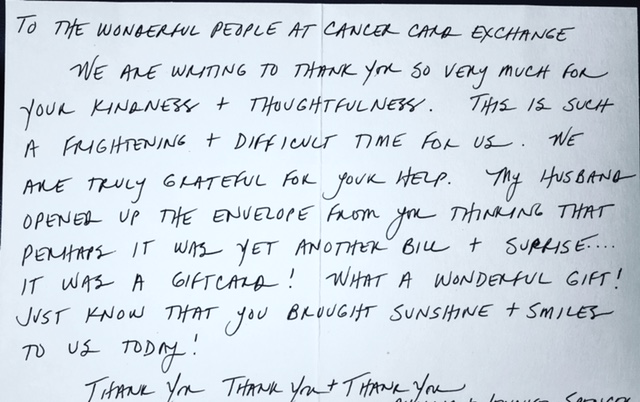 TO THE WONDERFUL PEOPLE AT CANCER CARD EXCHANGE
WE ARE WRITING TO THANK YOU SO VERY MUCH FOR
YOUR KINDNESS + THOUGHTFULNESS. THIS IS SUCH
A FRIGHTENING + DIFFICULT TIME FOR US. WE
ARE TRULY GRATEFUL FOR YOUR HELP. MY HUSBAND
OPENED UP THE ENVELOPE FROM YOU THINKING THAT
PERHAPS IT WAS YET ANOTHER BILL + SUPRISE....
IT WAS A GIFTCARD! WHAT A WONDERFUL GIFT!
JUST KNOW THAT YOU BROUGHT SUNSHINE + SMILES
TO US TODAY!
THANK YOU THANK YOU + THANK YOU